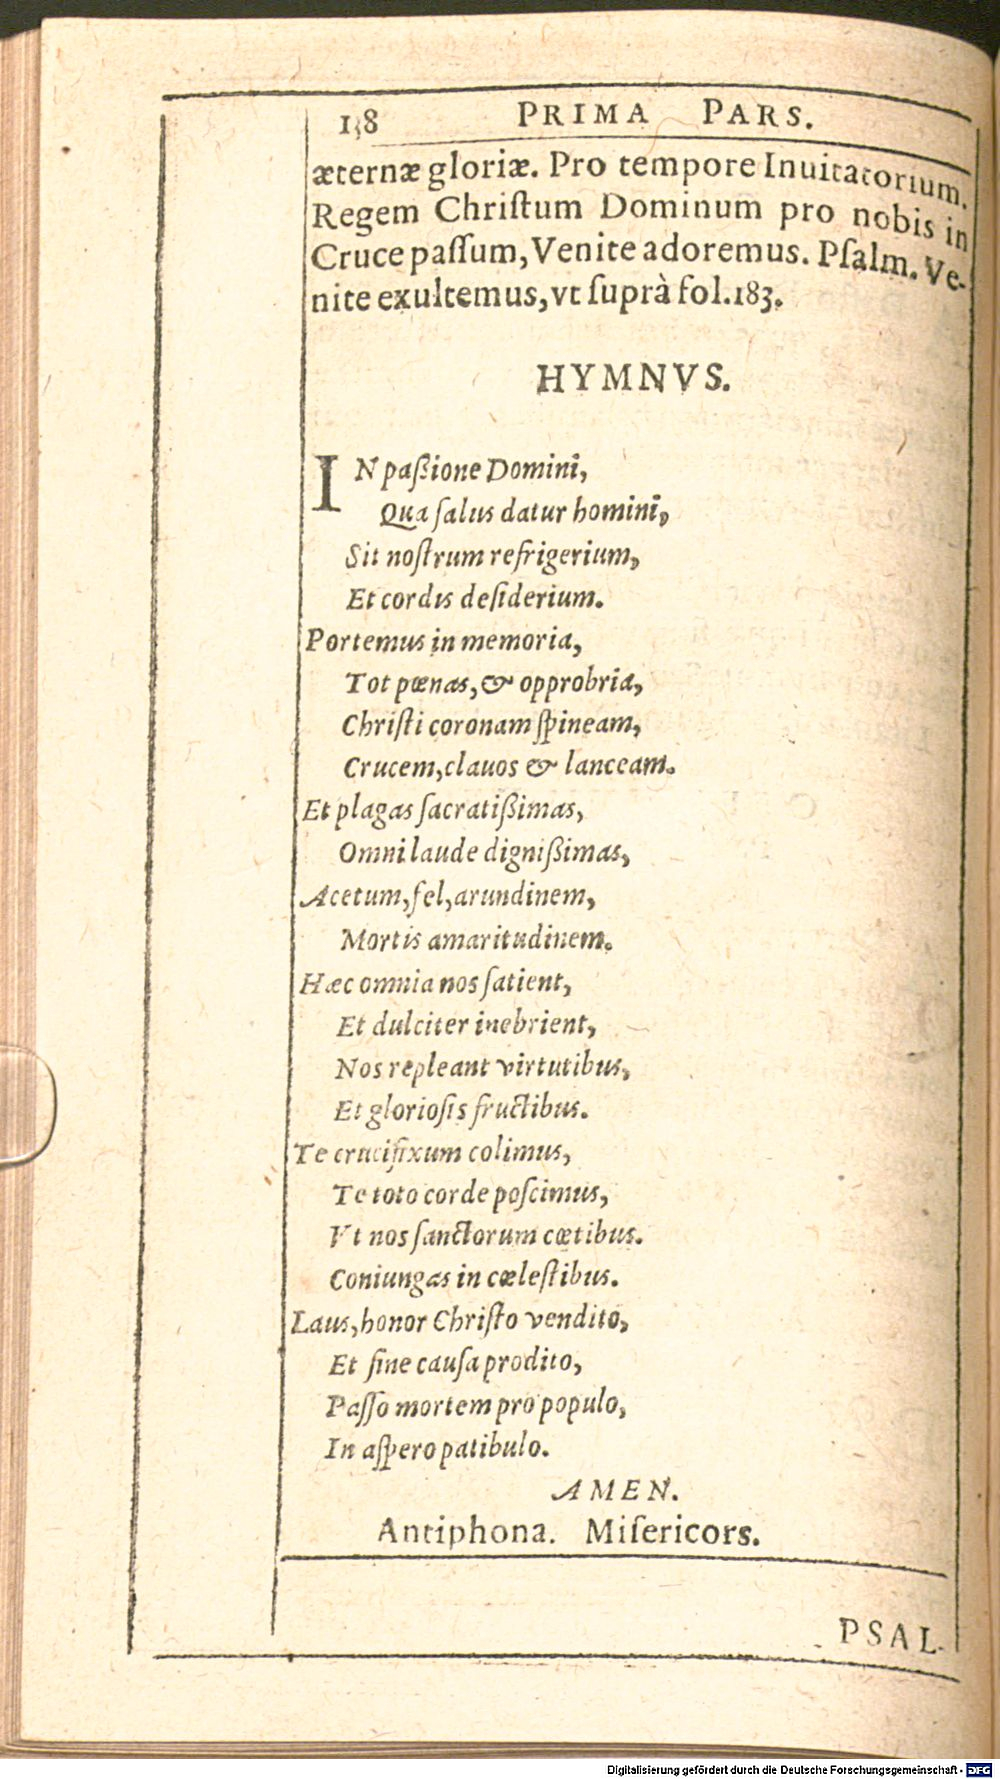 138 PRIMA PARS.
æternæ gloriæ. Pro tempore Inuitatorium.
Regem Chriſtum Dominum pro nobis in
Cruce paſſum, Venite adoremus. Pſalm. Ve-
nite exultemus, vt ſuprà fol.183.
HYMNVS.
IN paßione Domini,
Qua ſalus datur homini,
Sit noſtrum refrigerium,
Et cordis deſiderium.
Portemus in memoria,
Tot pœnas, & opprobria,
Chriſti coronam ſpineam,
Crucem, clauos & lanceam.
Et plagas ſacratißimas,
Omni laude dignißimas,
Acetum, fel, arundinem,
Mortis amaritudinem.
Hæc omnia nos ſatient,
Et dulciter inebrient,
Nos repleant virtutibus,
Et glorioſis fructibus.
Te crucifixum colimus,
Te toto corde poſcimus,
Vt nos ſanctorum cœtibus.
Coniungas in cœleſtibus.
Laus, honor Chriſto vendito,
Et ſine cauſa prodito,
Paſſo mortem pro populo,
In aſpero patibulo.
AMEN.
Antiphona. Miſericors.
PSAL-
Digitalisierung gefördert durch die Deutsche Forschungsgemeinschaft - DFG